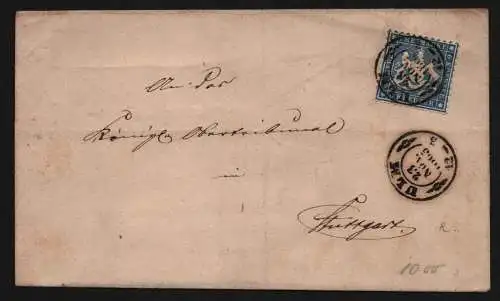 An das
Königl. Obertribunal
in
Stuttgart.
ULM
23
NOV.
1863
R.
10 00